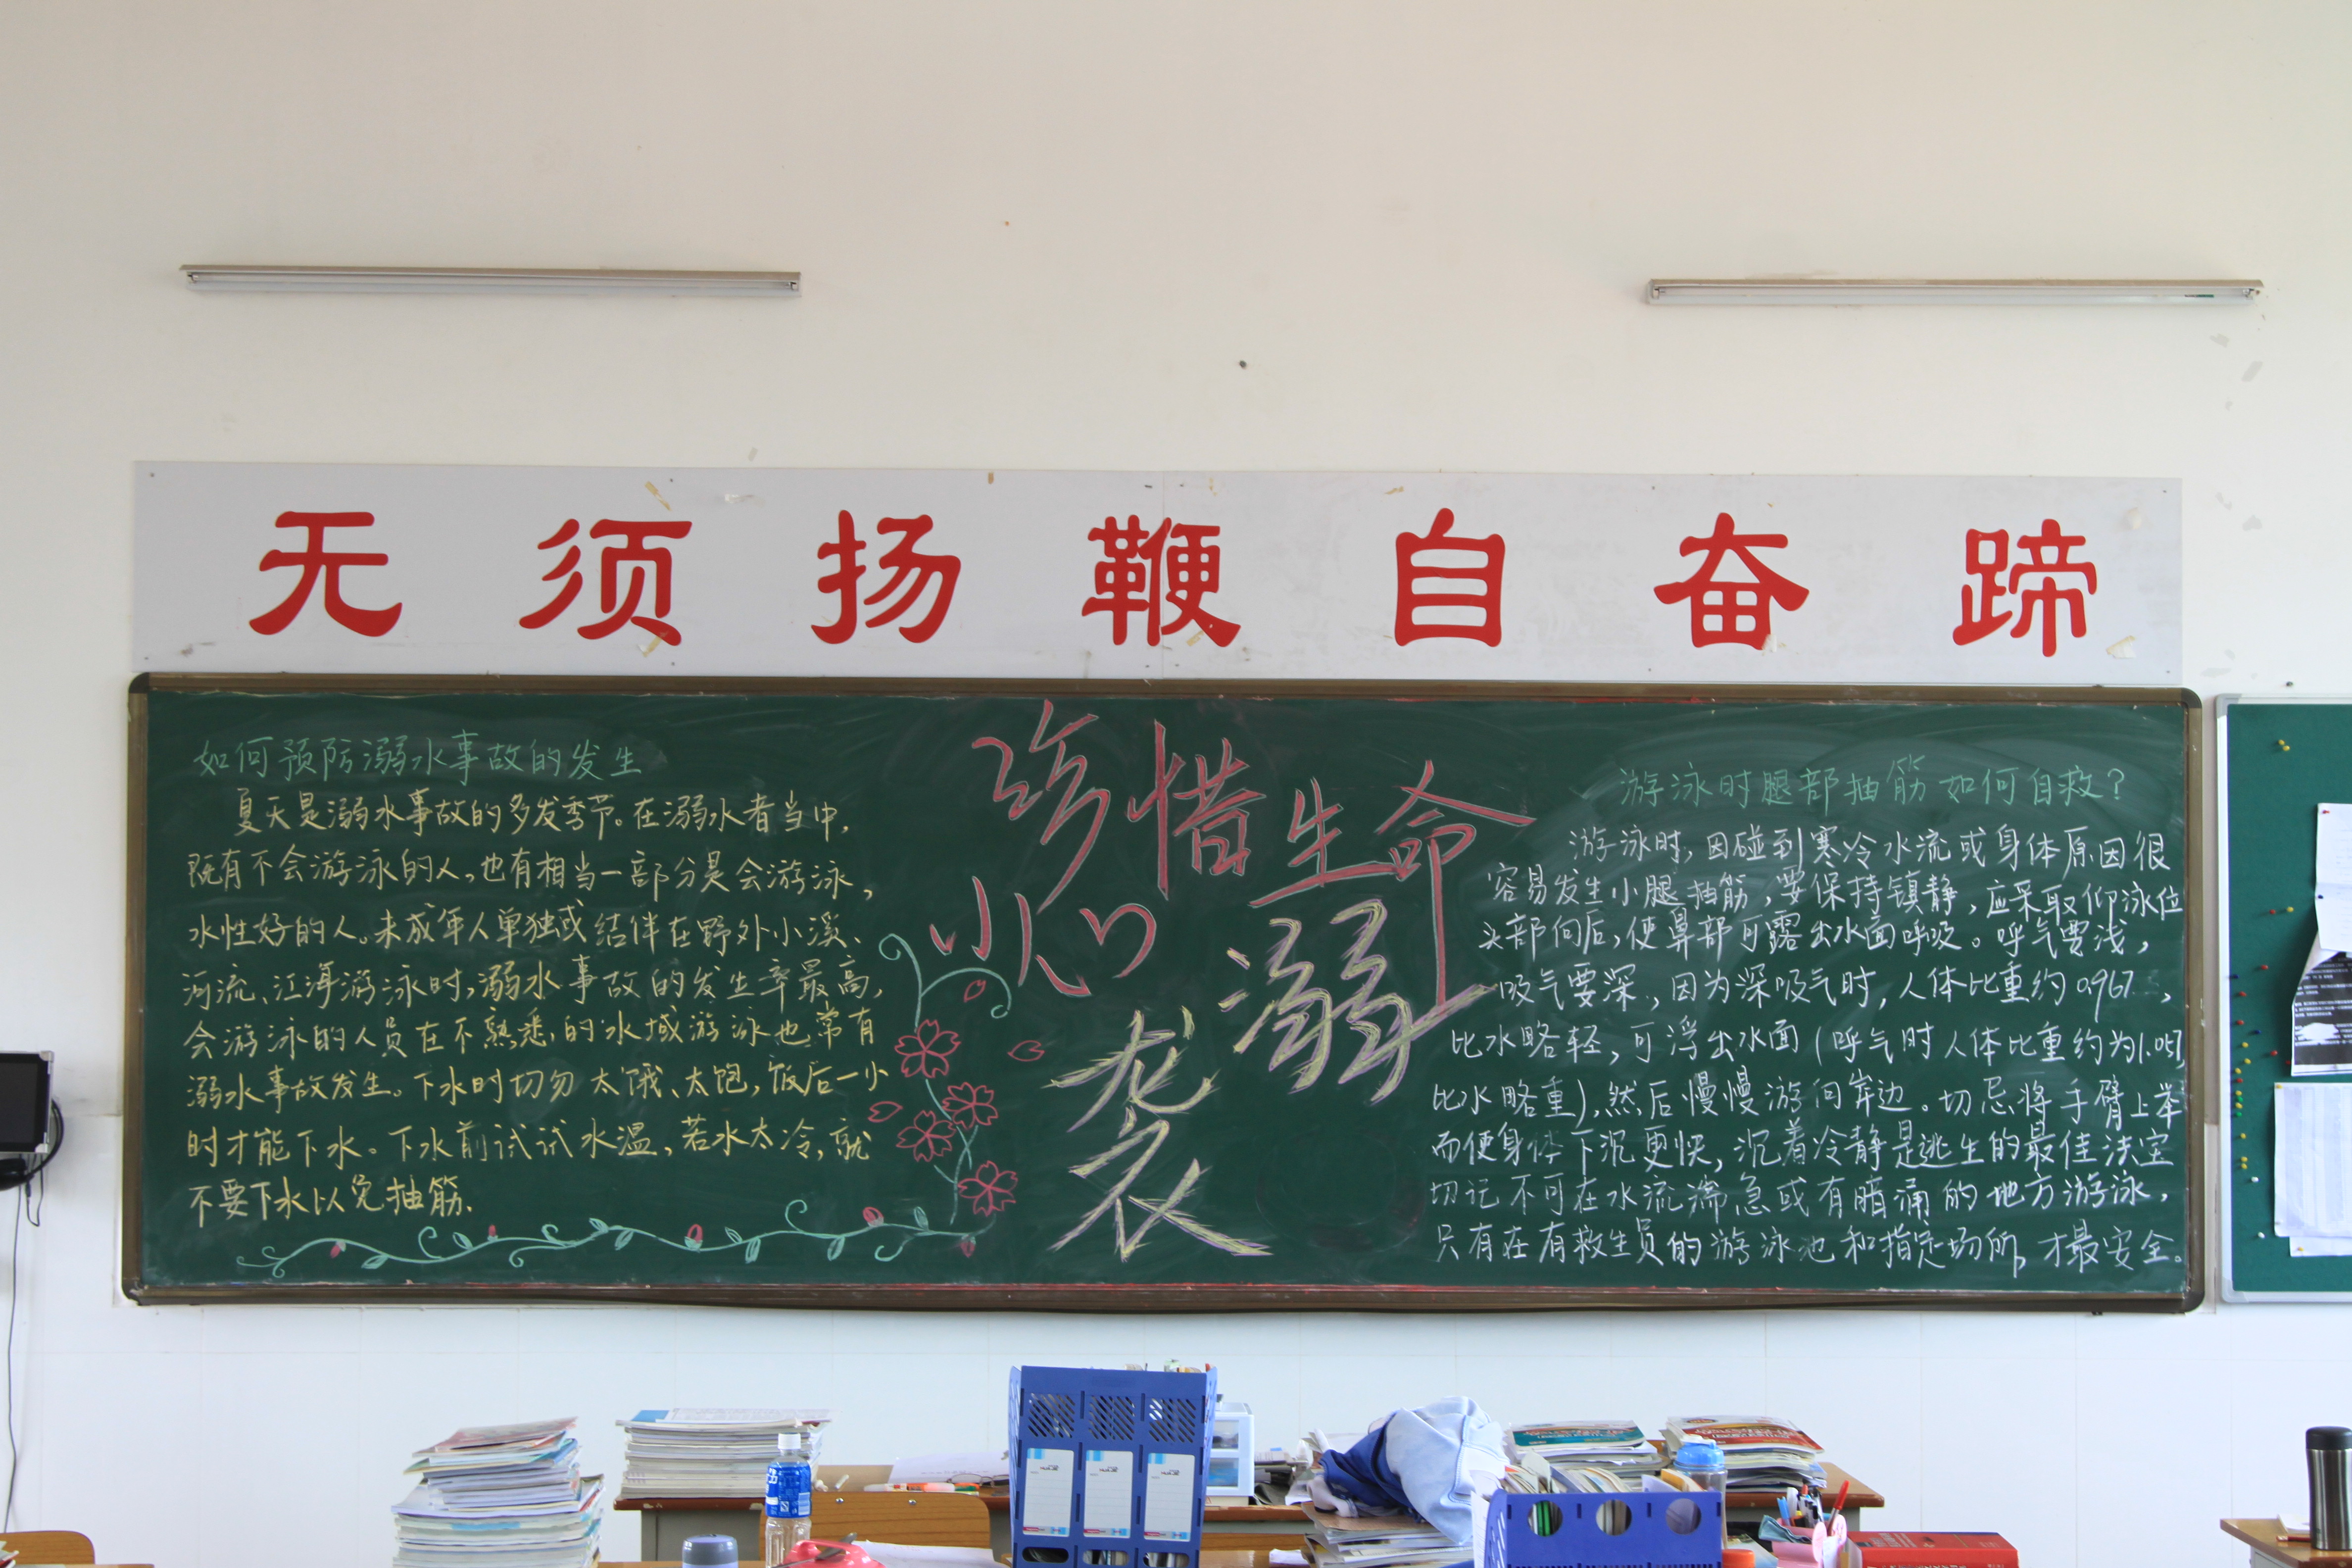 无须扬鞭自奋蹄
如何预防溺水事故的发生
夏天是溺水事故的多发季节。在溺水者当中,
既有不会游泳的人,也有相当一部分是会游泳,
水性好的人。未成年人单独或结伴在野外小溪、
河流、江海游泳时,溺水事故的发生率最高,
会游泳的人员在不熟悉的水域游泳也常有
溺水事故发生。下水时切勿太饿、太饱,饭后一小
时才能下水。下水前试试水温,若水太冷,就
不要下水以免抽筋.
珍惜生命
小心溺
袭
游泳时腿部抽筋如何自救?
游泳时,因碰到寒冷水流或身体原因很
容易发生小腿抽筋,要保持镇静,应采取仰泳位
头部向后,使鼻部可露出水面呼吸。呼气要浅,
吸气要深,因为深吸气时,人体比重约0.967,
比水略轻,可浮出水面(呼气时人体比重约为1.057
比水略重),然后慢慢游向岸边。切忌将手臂上举
而使身体下沉更快,沉着冷静是逃生的最佳法宝
切记不可在水流湍急或有暗涌的地方游泳,
只有在有救生员的游泳池和指定场所,才最安全。